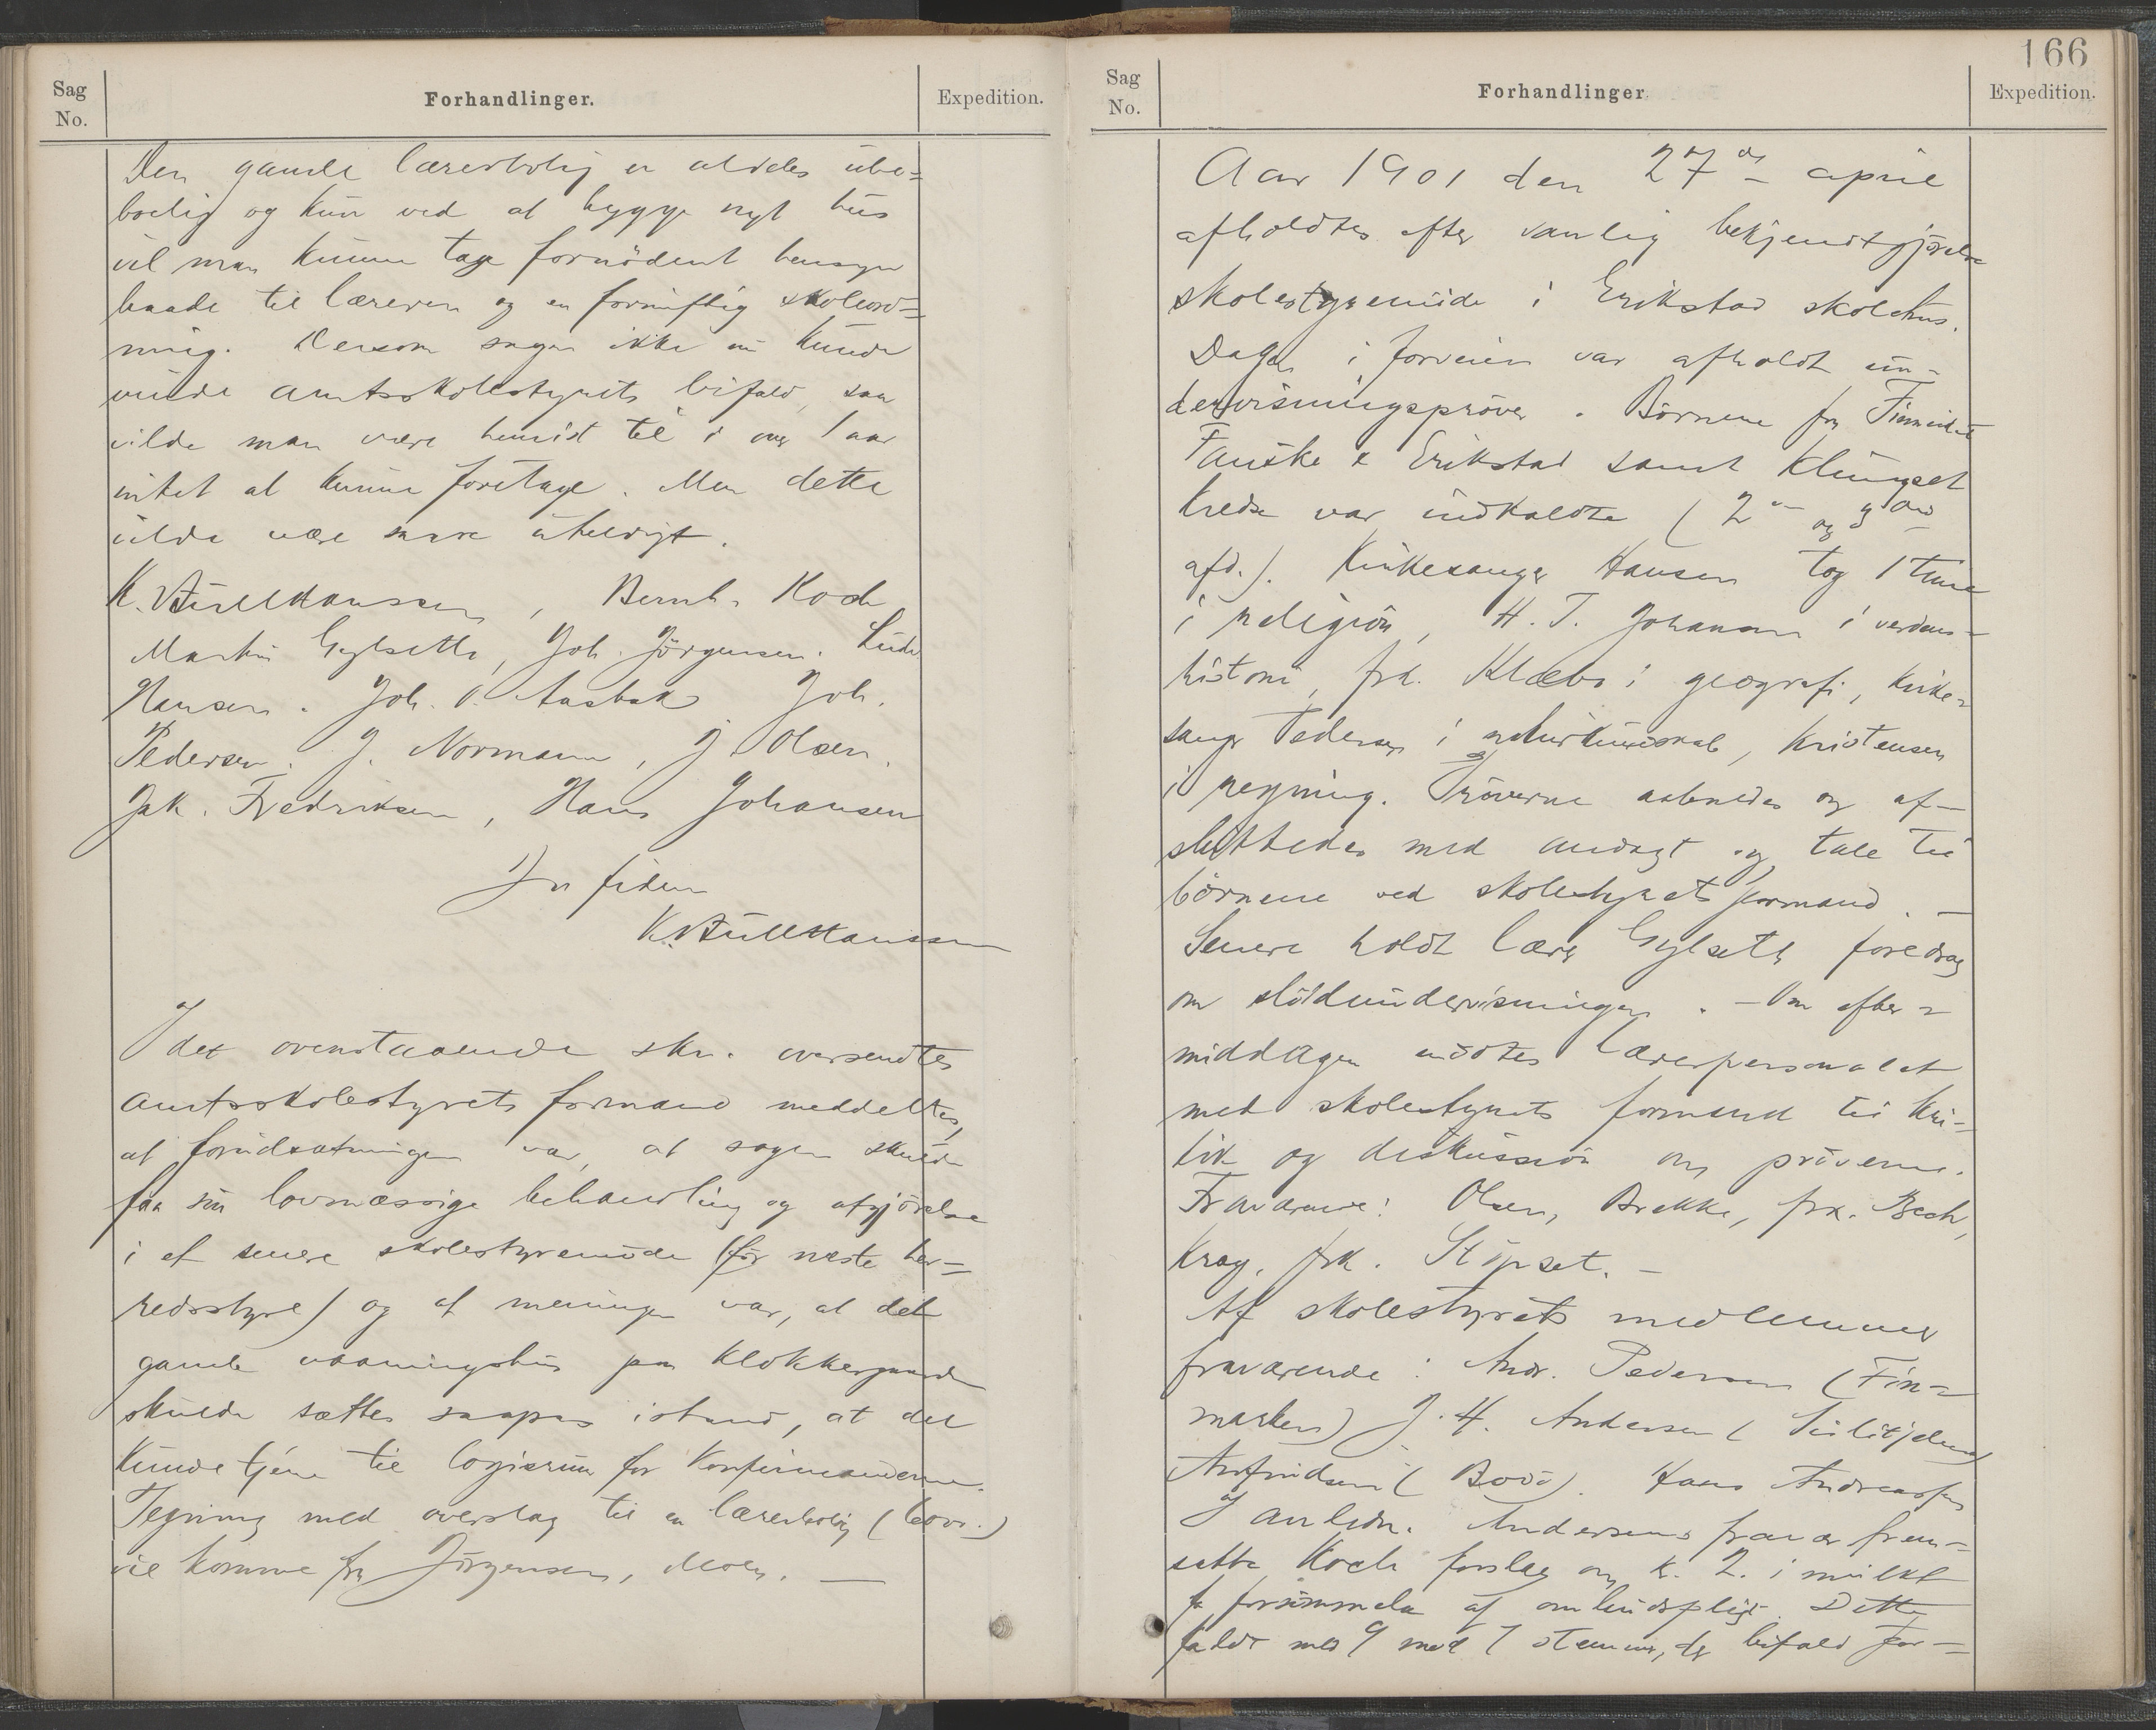 Sag
No.
Forhandlinger.
Expedition.
Den gamle lærerbolig er aldeles ube-
boelig og kun ved at bygge nyt hus
vil man kunne tage fornödent hensyn
baade til læreren og en fornuftig skoleord-
ning. Dersom sagen ikke nu kunde
vinde amtsskolestyrets bifald, saa
vilde man være henvist til i over 1 aar
intet at kunne foretage. Men dette
vilde være uheldigt.
K. Bull Hanssen, Bernh. Koch
Martin Gylseth, Joh. Jörgensen. Ludv.
Hansen. Joh. O. Aasbak Joh.
Pedersen. J. Normann, J Olsen.
Jak. Fredriksen, Hans Johansen
In fidem
K. Bull Hanssen
I det ovenstaaende skr. oversendtes
amtsskolestyrets formand meddeltes,
at forudsætningen var, at sagen skulde
faa sin lovmæssige behandling og afgjörelse
i et senere skolestyremöde (för næste her-
redsstyre) og at meningen var, at det
gamle vaaningshus paa Klokkergaarden
skulde sættes saapas istand, at det
kunde tjene til logisrum for konfirmanderne.
Tegning med overslag til en lærerbolig
vil komme fra Jörgensen, Moen. —
166
Sag
No.
Forhandlinger
Expedition.
Aar 1901 den 27de april
afholdtes efter vanlig bekjendtgjörelse
skolestyremöde i Erikstad skolehus.
Dagen i forveien var afholdt un-
dervisningspröver. Börnene fra Finneidet
Fauske & Erikstad samt Klungset
kredse var indkaldte (2den og 3die
afd.). Kirkesanger Hansen tog 1 time
i religion, H. T. Johansen i verdens-
historie, frk. Klæbo i geografi, kirke-
sanger Pedersen i naturkundskab, Kristensen
i regning. Pröverne aabnedes og af-
sluttedes med andagt og tale til
börnene ved skolestyrets formand. —
Senere holdt lærer Gylseth foredrag
om slöidundervisningen. - Om efter-
middagen mödtes lærerpersonalet
med skolestyrets formand til kri-
tik og diskussion om pröverne.
Fraværende: Olsen, Brekke, frk. Bech,
Krag, frk. Stöpset. —
Af skolestyrets medlemmer
fraværende: Andr. Pedersen (Fin-
marken) J. H. Andersen (Sulitjelma)
Arntfindsen (Bodö). Hans Andreassen
I anledn. Andersens fravær frem-
satte Koch forslag om kr. 2. i mulkt
for forsömmelse af ombudspligt. Dette
faldt med 9 mod 7 stemmer, der bifald for-